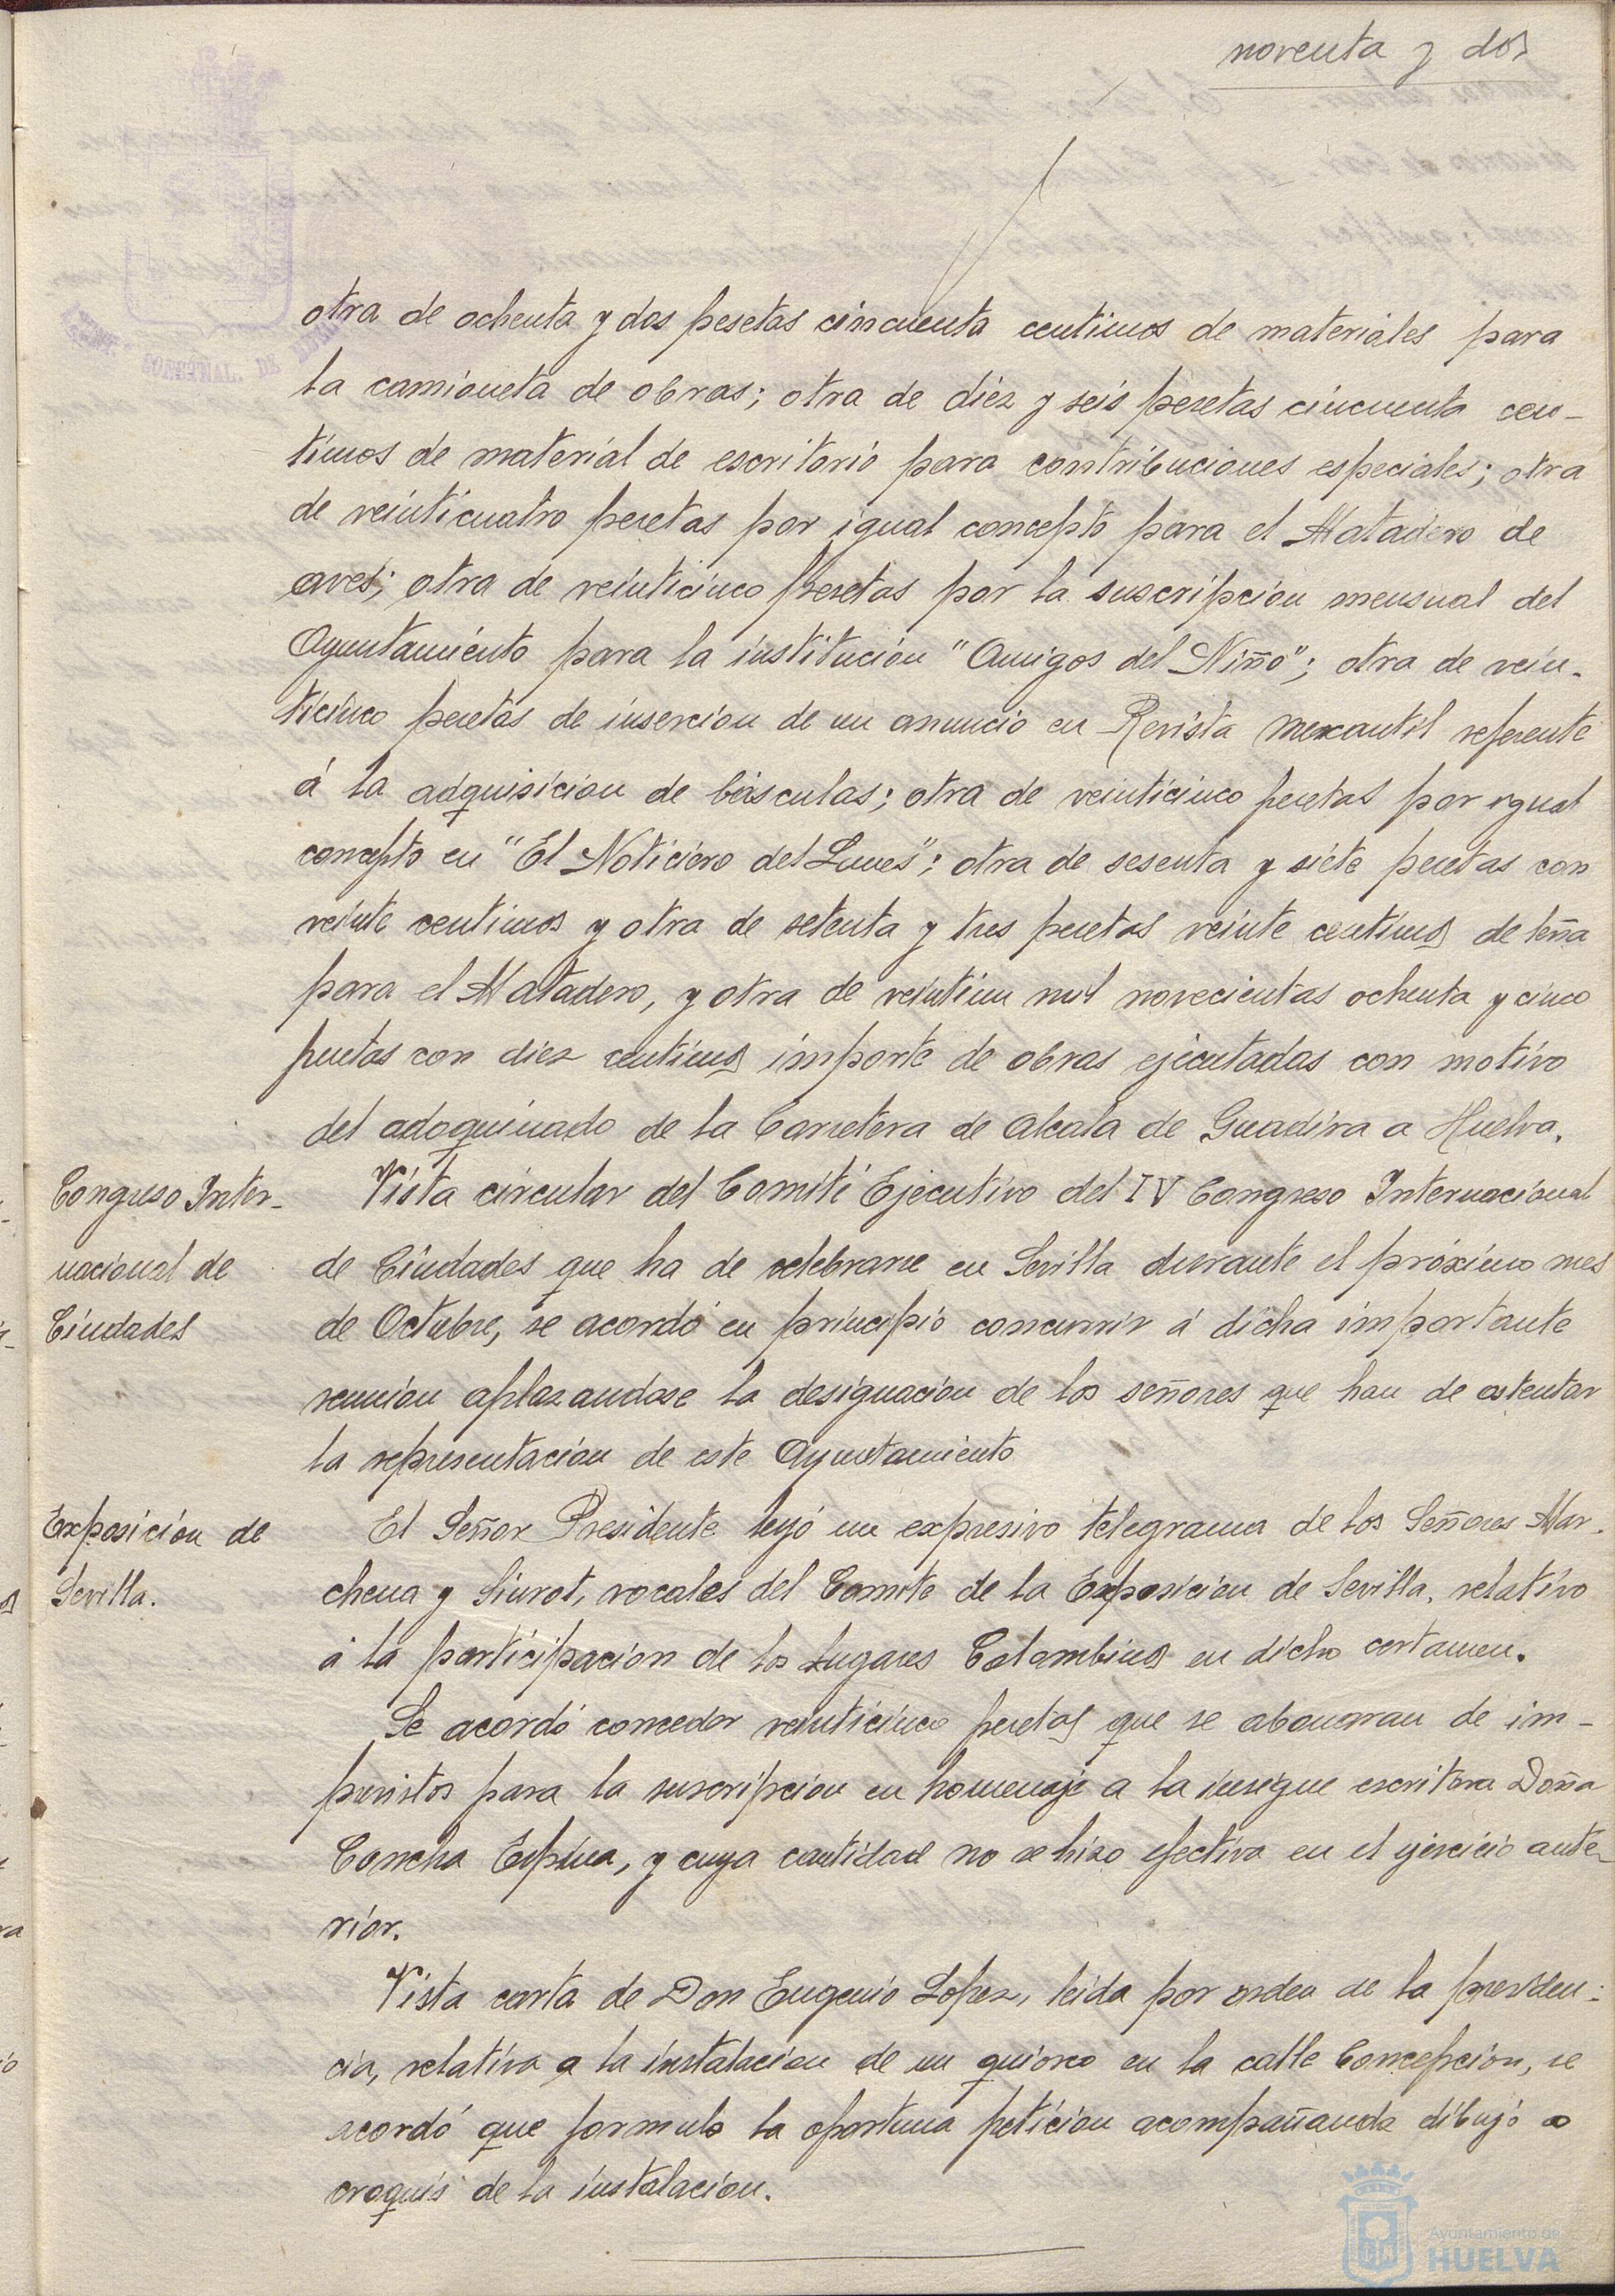 noventa y dos
otra de ochenta y dos pesetas cincuenta centimos de materiales para
la camioneta de obras; otra de diez y seis pesetas cincuenta cen-
timos de material de escritorio para contribuciones especiales; otra
de veinticuatro pesetas por igual concepto para el Matadero de
aves; otra de veinticinco pesetas por la suscripción mensual del
Ayuntamiento para la institución "Amigos del Niño"; otra de vein-
ticinco pesetas de insercion de un anuncio en Revista Mercantil referente
á la adquisicion de básculas; otra de veinticinco pesetas por igual
concepto en "El Noticiero del Lunes"; otra de sesenta y siete pesetas con
veinte centimos y otra de setenta y tres pesetas veinte centimos de leña
para el Matadero, y otra de veintiun mil novecientas ochenta y cinco
pesetas con diez centimos importe de obras ejecutadas con motivo
del adoquinado de la Carretera de Alcala de Guadira a Huelva.
Congreso Inter-
nacional de
Ciudades
Vista circular del Comité Ejecutivo del IV Congreso Internacional
de Ciudades que ha de celebrarse en Sevilla durante el próximo mes
de Octubre, se acordó en principio concurrir á dicha importante
reunion aplazandose la designacion de los señores que han de ostentar
la representación de este Ayuntamiento
Exposición de
Sevilla.
El Señor Presidente leyó un expresivo telegrama de los Señores Mar-
chena y Siurot, vocales del Comite de la Exposicion de Sevilla, relativo
á la participación de los Lugares Colombinos en dicho certamen.
Se acordó conceder veinticinco pesetas que se abonaran de im-
previstos para la suscripcion en homenaje a la insigne escritora Doña
Concha Espina, y cuya cantidad no se hizo efectiva en el ejercicio ante-
rior.
Vista carta de Don Eugenio Lopez, leida por orden de la presiden-
cia, relativa a la instalacion de un quiosco en la calle Concepcion, se
acordó que formule la oportuna petición acompañando dibujo o
croquis de la instalacion.
Ayuntamiento de
HUELVA